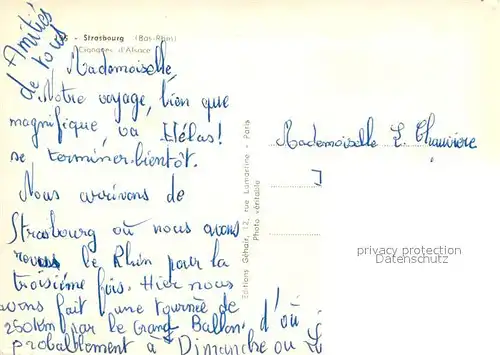 Amitiés
de tous
- Strasbourg (Bas-Rhin)
Cigognes d'Alsace
Mademoiselle,
Notre voyage, bien que
magnifique, va Hélas!
se terminer bientôt.
Nous arrivons de
Strasbourg où nous avons
le Rhin pour la
troisième fois. Hier nous
avons fait une tournée de
250km par le Grand Ballon d'où
probablement à Dimanche ou
Editions Géhair, 12, rue Lamartine - Paris
Photo véritable
Mademoiselle L. Chauvière
privacy protection
Datenschutz